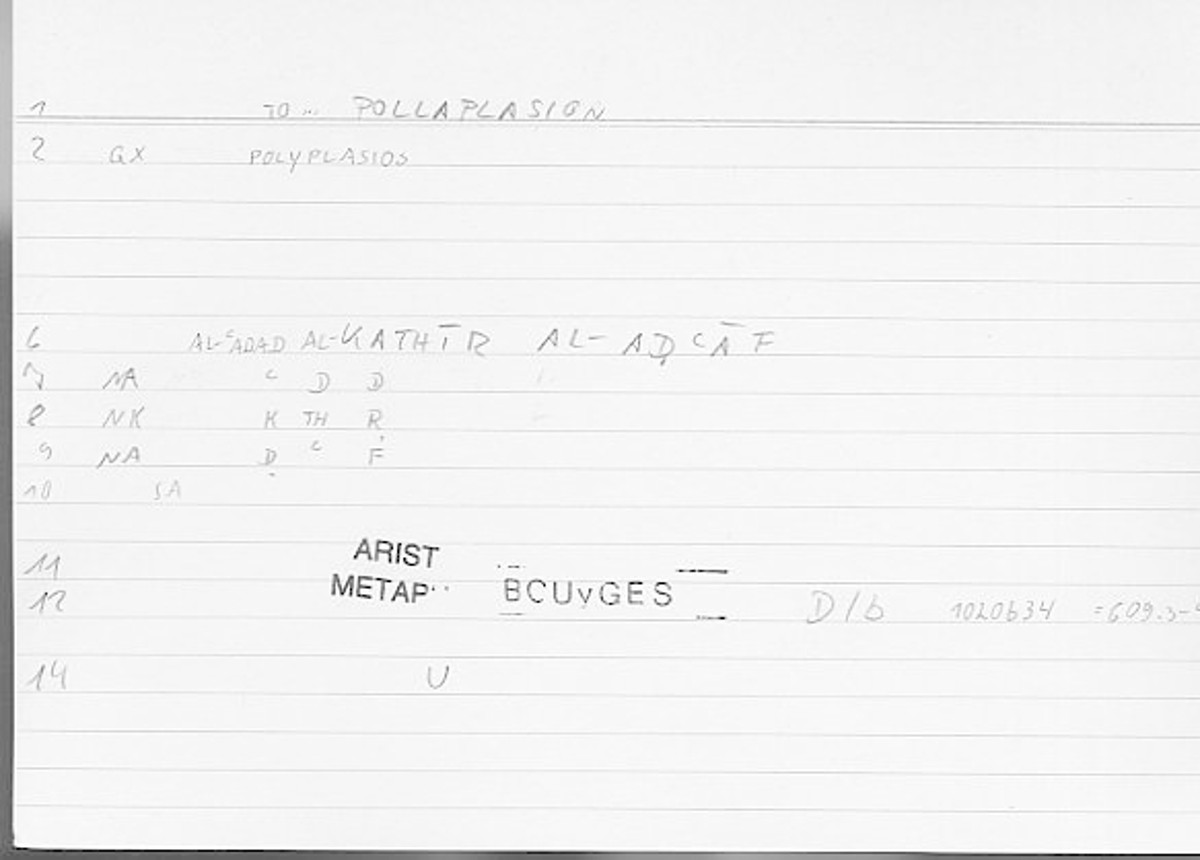 1 TO ... POLLAPLASION
2 GX POLYPLASIOS
6 AL-ʿADAD AL-KATHĪR AL-AḌʿĀF
7 NA ʿ D D
8 NK K TH R
9 NA Ḍ ʿ F
10 SA
11 ARIST
12 METAP·· BCUvGES D/b 1020b34 =609.3-4
14 U